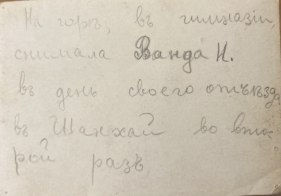 На горѣ, въ гимназіи,
снимала Ванда Н.
въ день своего отъѣзда
въ Шанхай во вто-
рой разъ